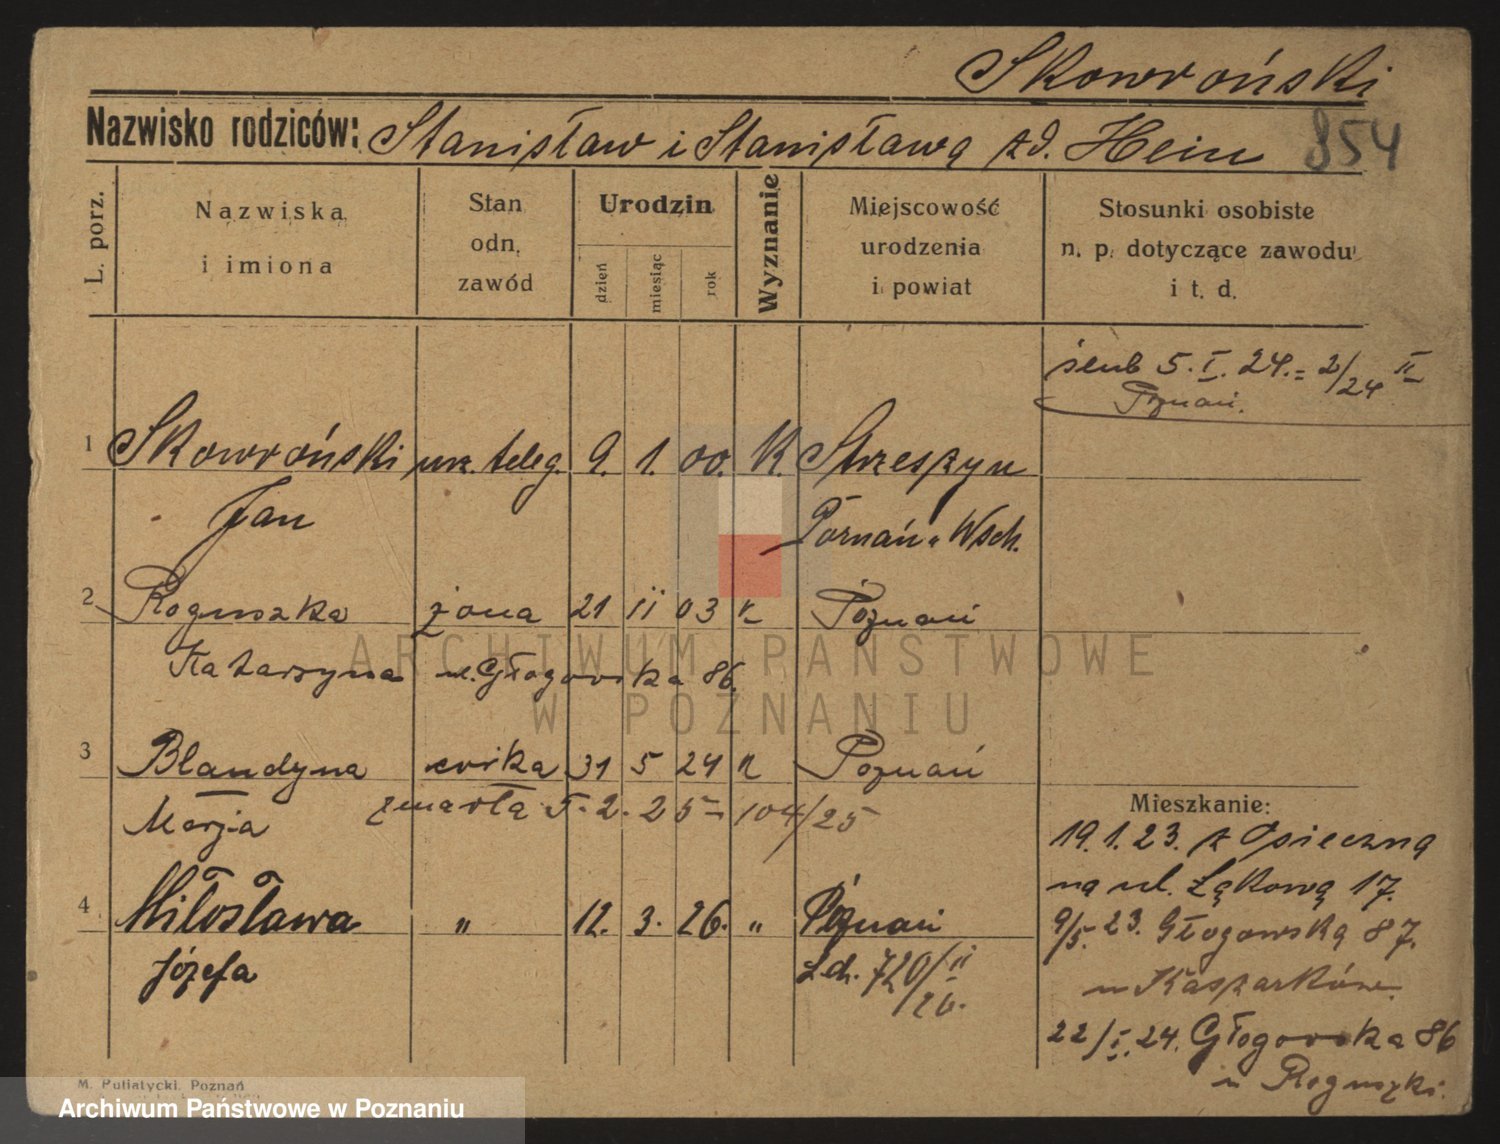 Skowroński
Nazwisko rodziców: Stanisław i Stanisława zd. Hein 854
L. porz.
Nazwiska i imiona
Stan odn. zawód
Urodzin
dzień miesiąc rok
Wyznanie
Miejscowość urodzenia i powiat
Stosunki osobiste n. p. dotyczące zawodu i t. d.
ślub 5. I. 24. = 2/24 II
Poznań.
1 Skowroński urz. teleg. 9. 1. 00. K. Strzeszyn
Jan Poznań Wsch.
2 Roguszka żona 21 II 03 K Poznań
Katarzyna ul. Głogowska 86.
3 Blandyna córka 31 5 24 K Poznań
Marja zmarła 5. 2. 25 – 104/25
4 Miłosława " 12. 3. 26. " Poznań
Józefa 720/II 26.
Mieszkanie:
19. 1. 23. z Osieczną
na ul. Łąkową 17.
9/5. 23. Głogowską 87.
u
22/I. 24. Głogowska 86
u Roguszki.
M. Putiatycki, Poznań
ARCHIWUM PAŃSTWOWE
W POZNANIU
Archiwum Państwowe w Poznaniu